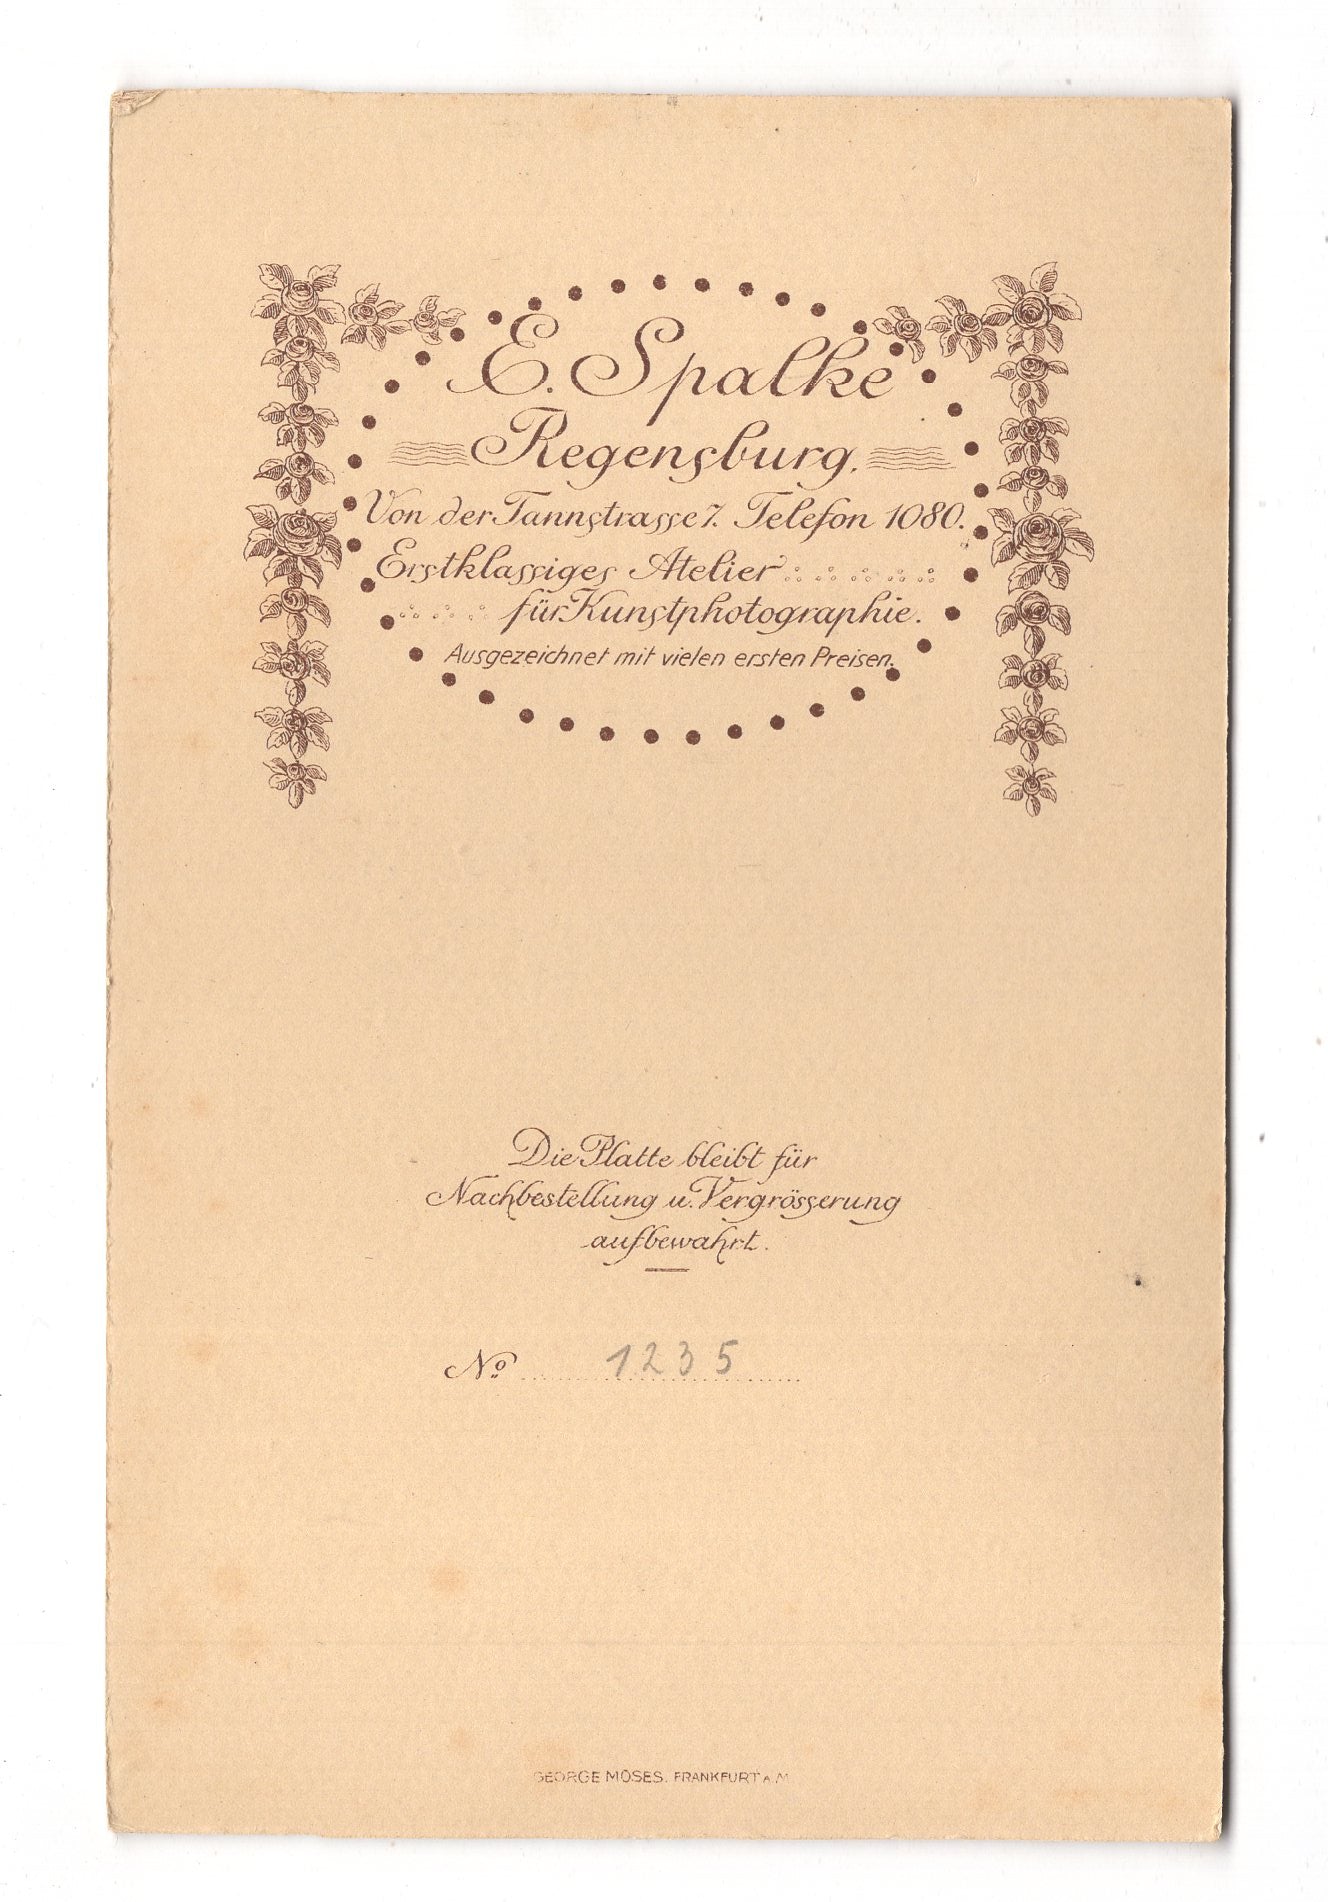 E. Spalke
Regensburg.
Von der Tannstrasse 7. Telefon 1080.
Erstklassiges Atelier
für Kunstphotographie.
Ausgezeichnet mit vielen ersten Preisen.
Die Platte bleibt für
Nachbestellung u. Vergrösserung
aufbewahrt.
Nº 1235
GEORGE MOSES. FRANKFURT A. M.